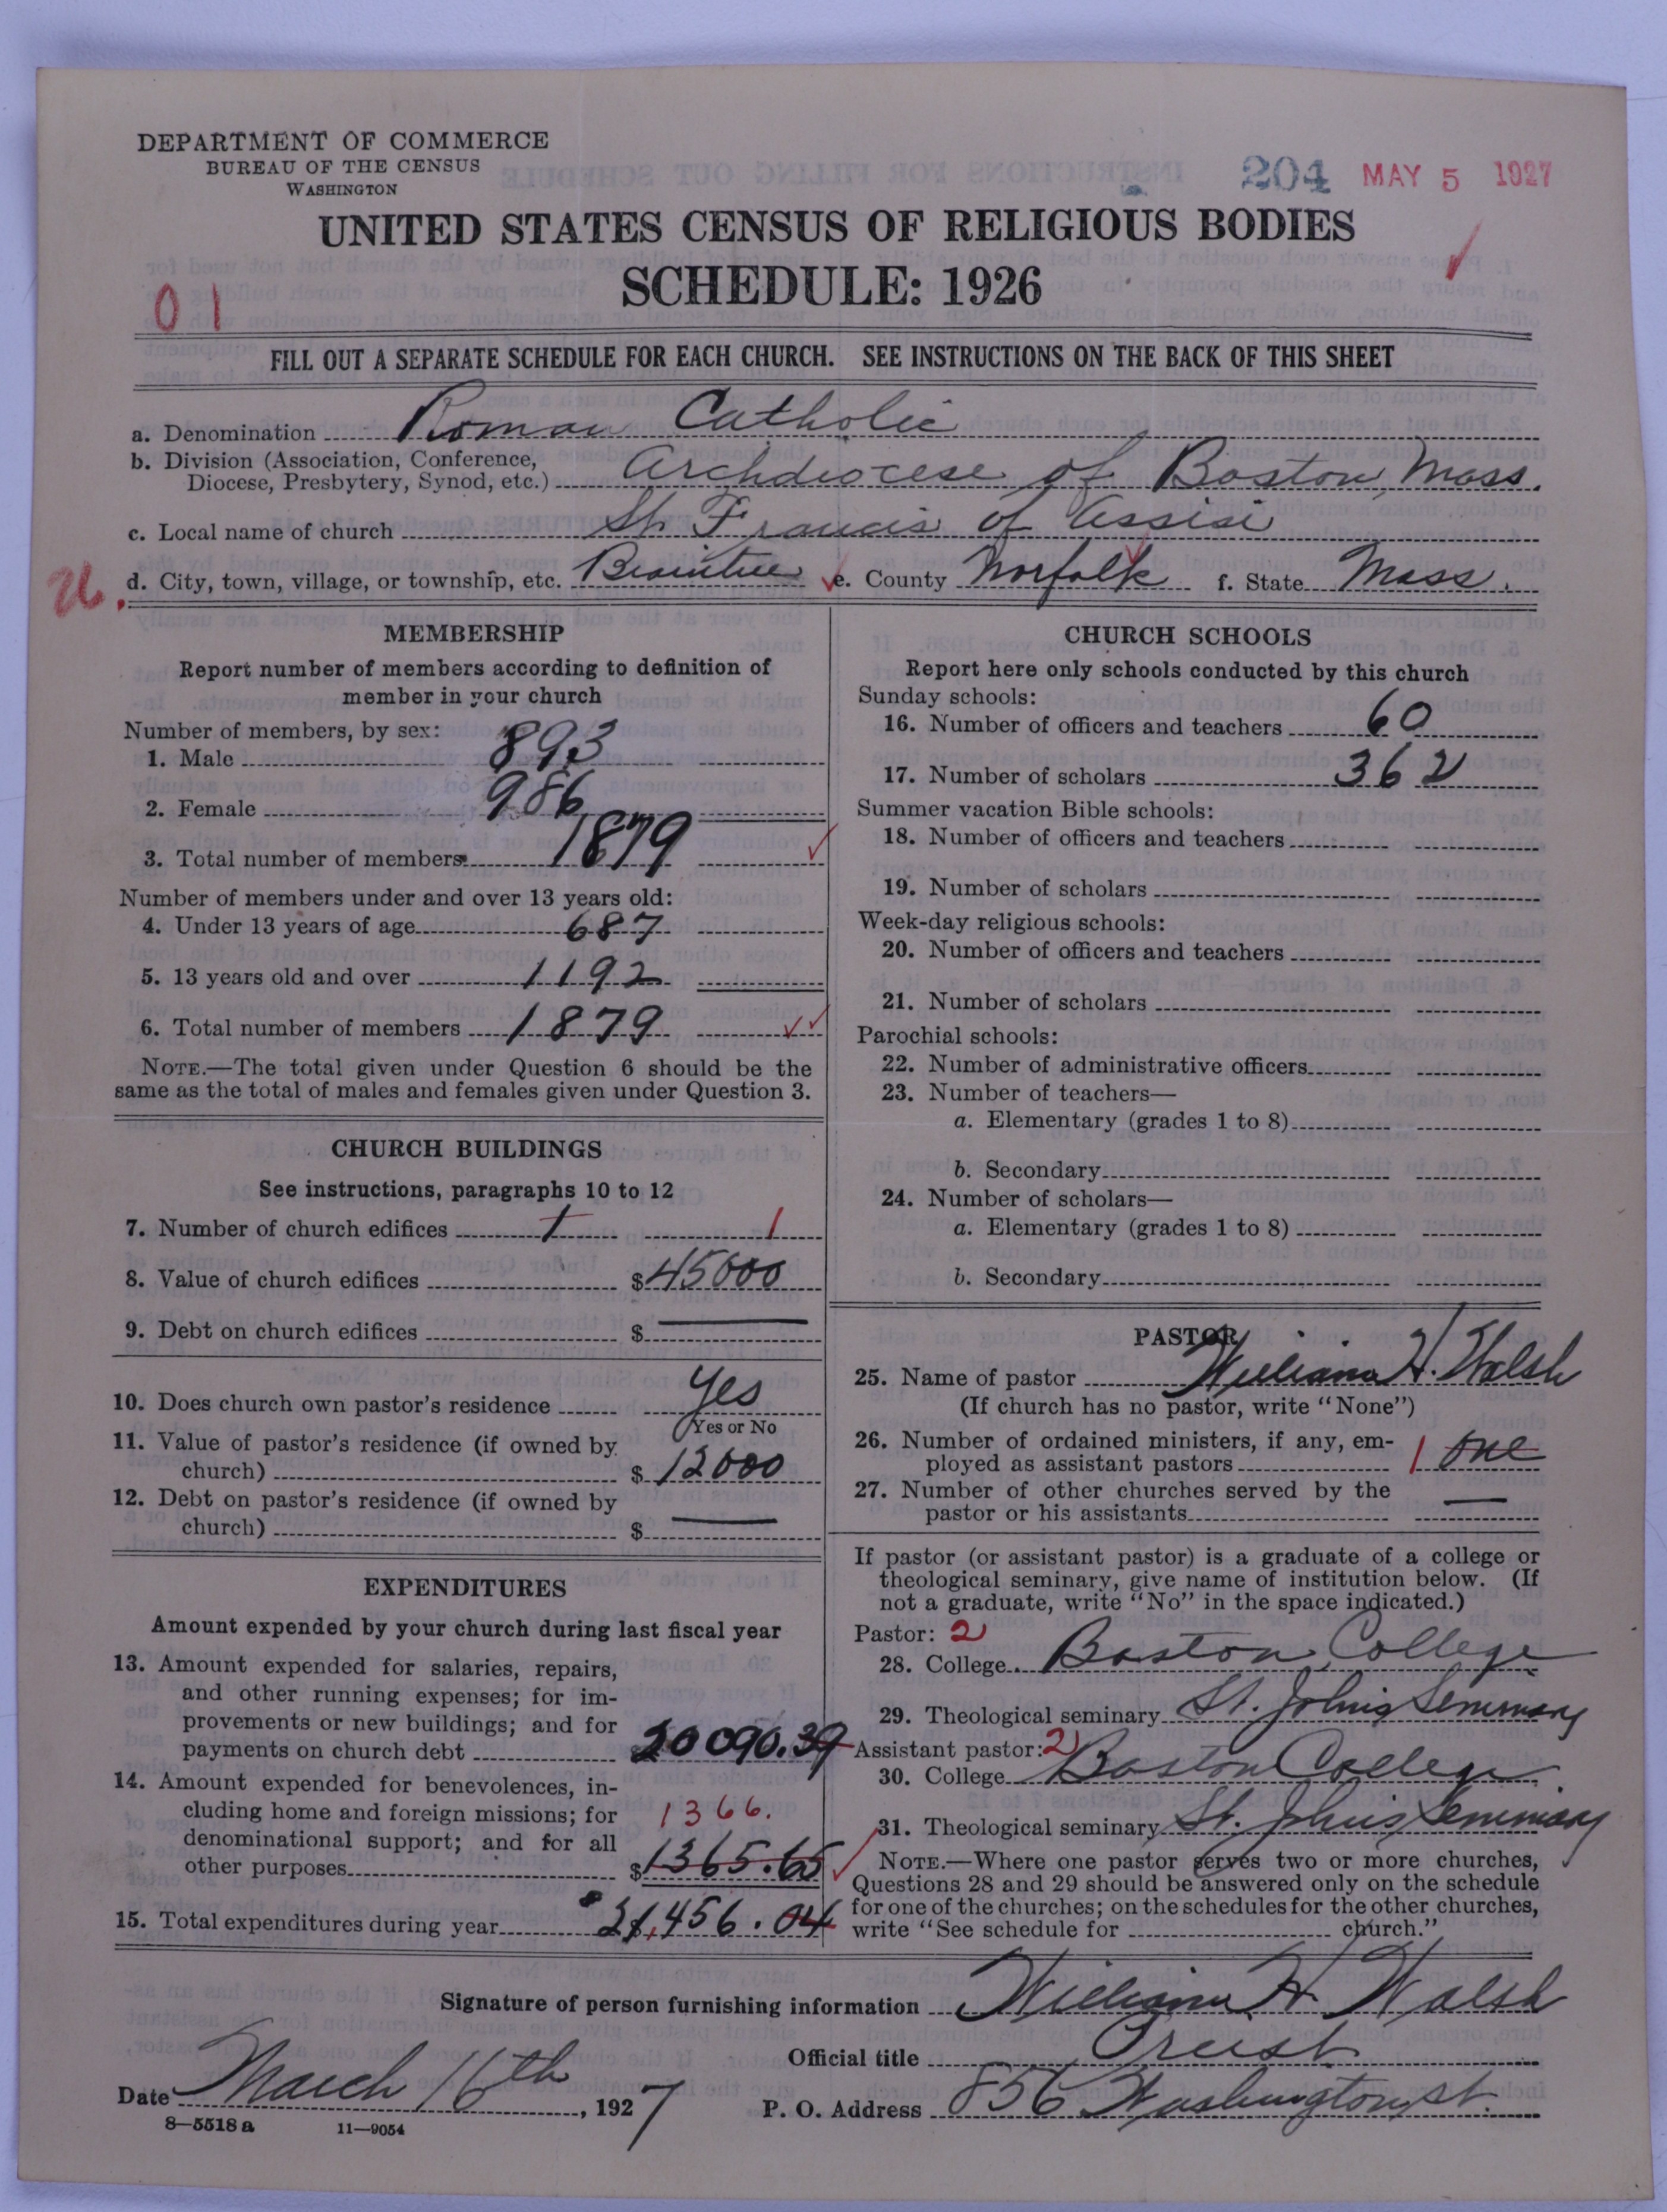 DEPARTMENT OF COMMERCE
BUREAU OF THE CENSUS
WASHINGTON
204 MAY 5 1927
UNITED STATES CENSUS OF RELIGIOUS BODIES
SCHEDULE: 1926
01
FILL OUT A SEPARATE SCHEDULE FOR EACH CHURCH. SEE INSTRUCTIONS ON THE BACK OF THIS SHEET
a. Denomination Roman Catholic
b. Division (Association, Conference,
Diocese, Presbytery, Synod, etc.) Archdiocese of Boston, Mass.
c. Local name of church St. Francis of Assisi
26. d. City, town, village, or township, etc. Braintree e. County Norfolk f. State Mass.
MEMBERSHIP
Report number of members according to definition of
member in your church
Number of members, by sex:
1. Male 893
2. Female 986
3. Total number of members 1879
Number of members under and over 13 years old:
4. Under 13 years of age 687
5. 13 years old and over 1192
6. Total number of members 1879
NOTE.—The total given under Question 6 should be the
same as the total of males and females given under Question 3.
CHURCH BUILDINGS
See instructions, paragraphs 10 to 12
7. Number of church edifices 1 1
8. Value of church edifices $45000
9. Debt on church edifices $ —
10. Does church own pastor's residence Yes
Yes or No
11. Value of pastor's residence (if owned by
church) $ 12000
12. Debt on pastor's residence (if owned by
church) $ —
EXPENDITURES
Amount expended by your church during last fiscal year
13. Amount expended for salaries, repairs,
and other running expenses; for im-
provements or new buildings; and for
payments on church debt 20090.39
14. Amount expended for benevolences, in-
cluding home and foreign missions; for 1366.
denominational support; and for all
other purposes $1365.65
15. Total expenditures during year 21,456.04
CHURCH SCHOOLS
Report here only schools conducted by this church
Sunday schools:
16. Number of officers and teachers 60
17. Number of scholars 362
Summer vacation Bible schools:
18. Number of officers and teachers
19. Number of scholars
Week-day religious schools:
20. Number of officers and teachers
21. Number of scholars
Parochial schools:
22. Number of administrative officers
23. Number of teachers—
a. Elementary (grades 1 to 8)
b. Secondary
24. Number of scholars—
a. Elementary (grades 1 to 8)
b. Secondary
PASTOR
25. Name of pastor William H. Walsh
(If church has no pastor, write "None")
26. Number of ordained ministers, if any, em-
ployed as assistant pastors 1 one
27. Number of other churches served by the
pastor or his assistants —
If pastor (or assistant pastor) is a graduate of a college or
theological seminary, give name of institution below. (If
not a graduate, write "No" in the space indicated.)
Pastor: 2
28. College Boston College
29. Theological seminary St. John's Seminary
Assistant pastor: 2
30. College Boston College
31. Theological seminary St. John's Seminary
NOTE.—Where one pastor serves two or more churches,
Questions 28 and 29 should be answered only on the schedule
for one of the churches; on the schedules for the other churches,
write "See schedule for church."
Signature of person furnishing information William H Walsh
Official title Priest
Date March 16th, 1927 P. O. Address 856 Washington St.
8—5518 a 11—9054